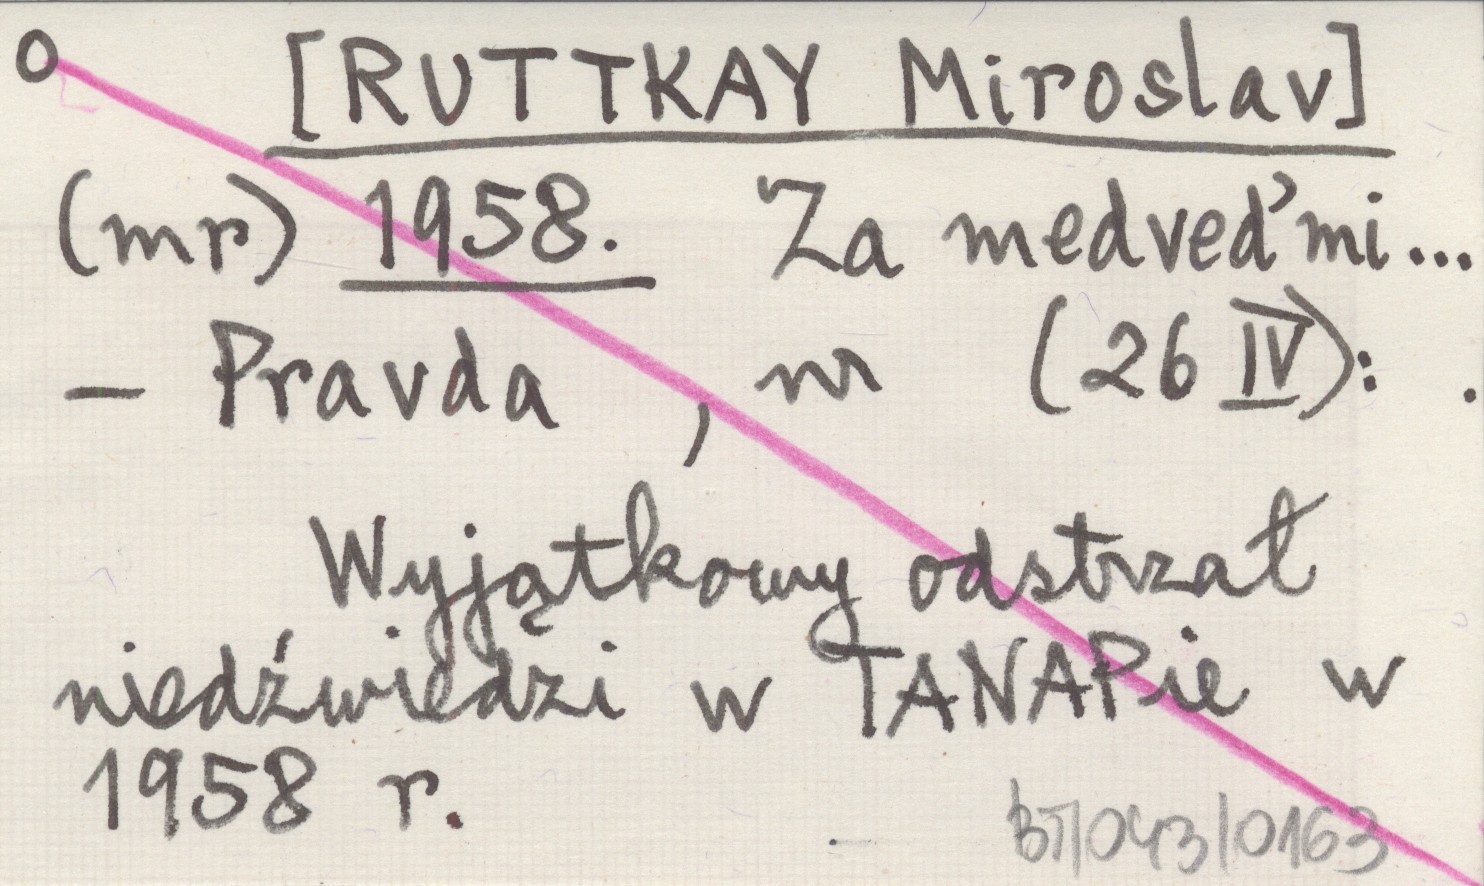 o [RUTTKAY Miroslav]
(mr) 1958. Za medveďmi...
– Pravda , nr (26 IV): .
Wyjątkowy odstrzał
niedźwiedzi w TANAPie w
1958 r.
BT/043/0163